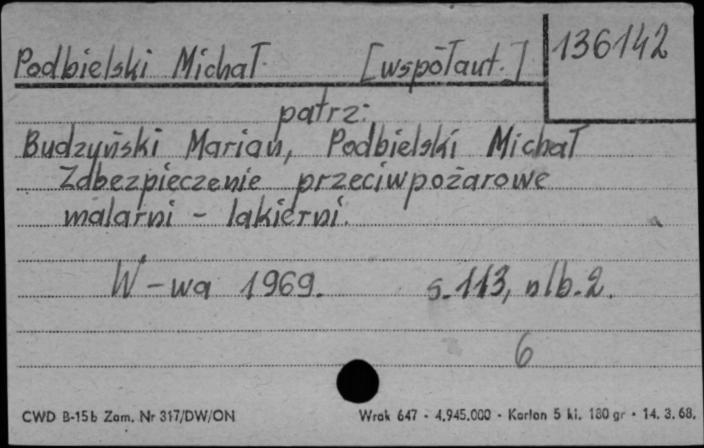 Podbielski Michał [współaut.] 136142
patrz:
Budzyński Marian, Podbielski Michał
Zabezpieczenie przeciwpożarowe
malarni - lakierni.
W-wa 1969. s. 113, nlb. 2.
6
CWD B-15b Zam. Nr 317/DW/ON Wrak 647 - 4.945.000 - Karton 5 kl. 180 gr - 14. 3. 68.